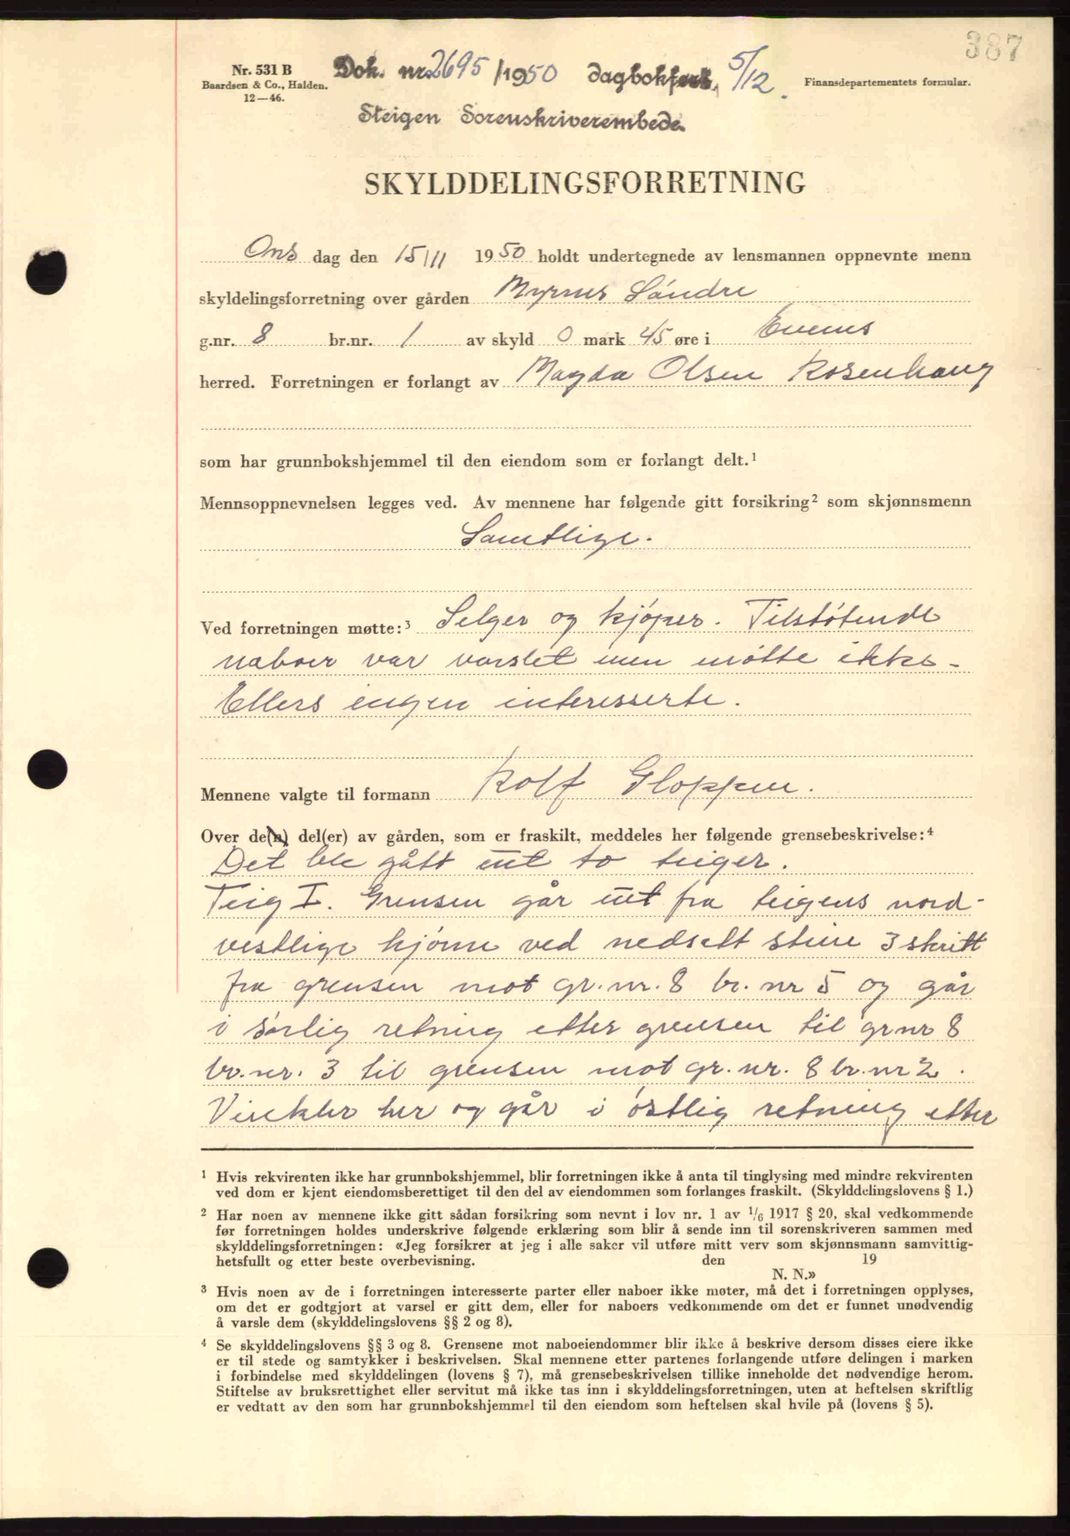 387
Nr. 531 B
Baardsen & Co., Halden.
12—46.
Dok. nr. 2695/1950 dagbokført 5/12.
Finansdepartementets formular.
Steigen Sorenskriverembede
SKYLDDELINGSFORRETNING
Ons dag den 15/11 1950 holdt undertegnede av lensmannen oppnevnte menn
skyldelingsforretning over gården Myrnes Søndre
g.nr. 8 br.nr. 1 av skyld 0 mark 45 øre i Evenes
herred. Forretningen er forlangt av Magda Olsen Rosenhaug
som har grunnbokshjemmel til den eiendom som er forlangt delt.¹
Mennsoppnevnelsen legges ved. Av mennene har følgende gitt forsikring² som skjønnsmenn
Samtlige.
Ved forretningen møtte:³ Selger og kjøper. Tilstøtende
naboer var varslet men møtte ikke.
Ellers ingen interesserte.
Mennene valgte til formann Rolf Gloppen.
Over de(n) del(er) av gården, som er fraskilt, meddeles her følgende grensebeskrivelse:⁴
Det ble gått ut to teiger.
Teig I. Grensen går ut fra teigens nord-
vestlige hjørne ved nedsatt stein 3 skritt
fra grensen mot gr.nr. 8 br. nr 5 og går
i sørlig retning etter grensen til gr nr 8
br.nr. 3 til grensen mot gr. nr. 8 br. nr 2.
Vinkler her og går i østlig retning etter
¹ Hvis rekvirenten ikke har grunnbokshjemmel, blir forretningen ikke å anta til tinglysing med mindre rekvirenten
ved dom er kjent eiendomsberettiget til den del av eiendommen som forlanges fraskilt. (Skylddelingslovens § 1.)
² Har noen av mennene ikke gitt sådan forsikring som nevnt i lov nr. 1 av 1/6 1917 § 20, skal vedkommende
før forretningen holdes underskrive følgende erklæring som blir å sende inn til sorenskriveren sammen med
skylddelingsforretningen: «Jeg forsikrer at jeg i alle saker vil utføre mitt verv som skjønnsmann samvittig-
hetsfullt og etter beste overbevisning. den 19
N. N.»
³ Hvis noen av de i forretningen interesserte parter eller naboer ikke møter, må det i forretningen opplyses,
om det er godtgjort at varsel er gitt dem, eller for naboers vedkommende om det er funnet unødvendig
å varsle dem (skylddelingslovens §§ 2 og 8).
⁴ Se skylddelingslovens §§ 3 og 8. Grensene mot naboeiendommer blir ikke å beskrive dersom disses eiere ikke
er til stede og samtykker i beskrivelsen. Skal mennene etter partenes forlangende utføre delingen i marken
i forbindelse med skylddelingen (lovens § 7), må grensebeskrivelsen tillike inneholde det nødvendige herom.
Stiftelse av bruksrettighet eller servitut må ikke tas inn i skylddelingsforretningen, uten at heftelsen skriftlig
er vedtatt av den som har grunnbokshjemmel til den eiendom som heftelsen skal hvile på (lovens § 5).